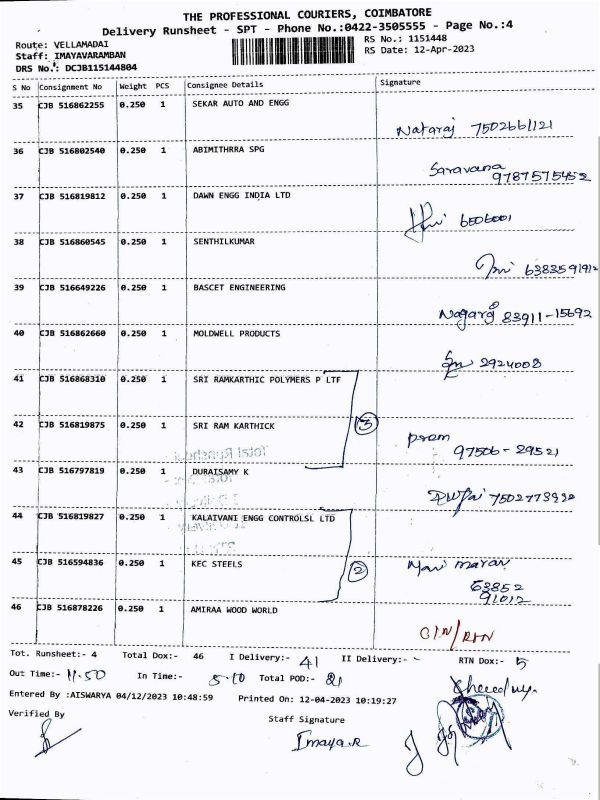 THE PROFESSIONAL COURIERS, COIMBATORE
Delivery Runsheet - SPT - Phone No.:0422-3505555 - Page No.:4
Route: VELLAMADAI RS No.: 1151448
Staff: IMAYAVARAMBAN RS Date: 12-Apr-2023
DRS No.: DCJB115144804
S No Consignment No Weight PCS Consignee Details Signature
35 CJB 516862255 0.250 1 SEKAR AUTO AND ENGG
Nataraj 7502661121
36 CJB 516802540 0.250 1 ABIMITHRRA SPG
Saravana 9787575452
37 CJB 516819812 0.250 1 DAWN ENGG INDIA LTD
6506001
38 CJB 516860545 0.250 1 SENTHILKUMAR
6383591912
39 CJB 516649226 0.250 1 BASCET ENGINEERING
Nagaraj 83911-15692
40 CJB 516862660 0.250 1 MOLDWELL PRODUCTS
2924008
41 CJB 516868310 0.250 1 SRI RAMKARTHIC POLYMERS P LTF
42 CJB 516819875 0.250 1 SRI RAM KARTHICK
3
prem
97506-29521
43 CJB 516797819 0.250 1 DURAISAMY K
7502773932
44 CJB 516819827 0.250 1 KALAIVANI ENGG CONTROLSL LTD
45 CJB 516594836 0.250 1 KEC STEELS
2
Mari maran
63852
91012
46 CJB 516878226 0.250 1 AMIRAA WOOD WORLD
CIN/RTN
Tot. Runsheet:- 4 Total Dox:- 46 I Delivery:- 41 II Delivery:- - RTN Dox:- 5
Out Time:- 11.50 In Time:- 5.10 Total POD:- 21
Entered By :AISWARYA 04/12/2023 10:48:59 Printed On: 12-04-2023 10:19:27
Verified By Staff Signature
Imaya.R